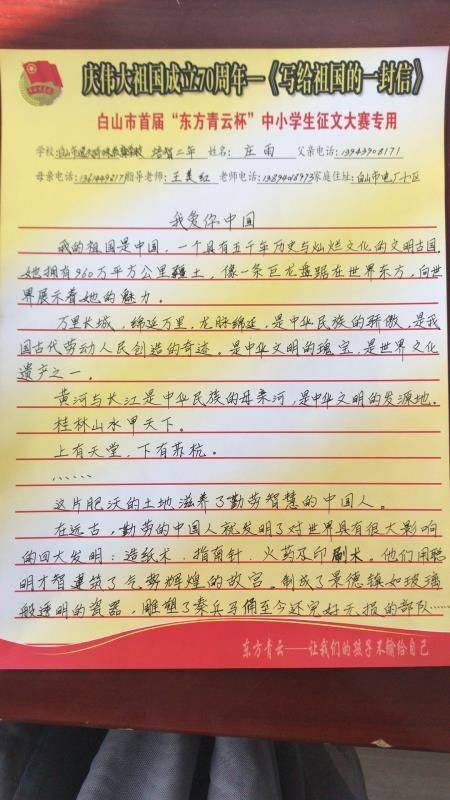 庆伟大祖国成立70周年—《写给祖国的一封信》
白山市首届“东方青云杯”中小学生征文大赛专用
学校: 培智二年 姓名: 庄雨 父亲电话: 13943908171
母亲电话: 指导老师: 王美红 老师电话: 13894018973 家庭住址: 白山市电厂小区
我爱你中国
我的祖国是中国,一个具有五千年历史与灿烂文化的文明古国。
她拥有960万平方公里疆土,像一条巨龙盘踞在世界东方,向世
界展示着她的魅力。
万里长城,绵延万里,龙脉绵延,是中华民族的骄傲,是我
国古代劳动人民创造的奇迹。是中华文明的瑰宝,是世界文化
遗产之一。
黄河与长江是中华民族的母亲河,是中华文明的发源地。
桂林山水甲天下。
上有天堂,下有苏杭。
……
这片肥沃的土地滋养了勤劳智慧的中国人。
在远古,勤劳的中国人就发明了对世界具有很大影响
的四大发明:造纸术、指南针、火药及印刷术。他们用聪
明才智建筑了气势辉煌的故宫。制成了景德镇如玻璃
般透明的瓷器,雕塑了秦兵马俑至今还完好无损的部队……
东方青云——让我们的孩子不输给自己